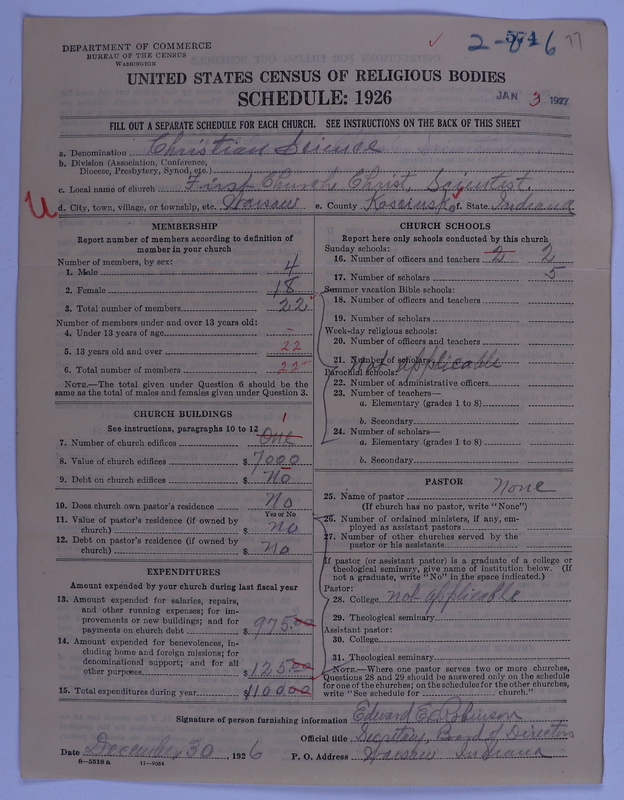 2-
77
DEPARTMENT OF COMMERCE
BUREAU OF THE CENSUS
WASHINGTON
UNITED STATES CENSUS OF RELIGIOUS BODIES
SCHEDULE: 1926
JAN 3 1927
FILL OUT A SEPARATE SCHEDULE FOR EACH CHURCH. SEE INSTRUCTIONS ON THE BACK OF THIS SHEET
a. Denomination Christian Science
b. Division (Association, Conference, Diocese, Presbytery, Synod, etc.)
c. Local name of church First Church Christ, Scientist,
U
d. City, town, village, or township, etc. Warsaw e. County Kosciusko f. State Indiana
MEMBERSHIP
Report number of members according to definition of
member in your church
Number of members, by sex:
1. Male 4
2. Female 18
3. Total number of members 22
Number of members under and over 13 years old:
4. Under 13 years of age -
5. 13 years old and over 22
6. Total number of members 22
NOTE.—The total given under Question 6 should be the
same as the total of males and females given under Question 3.
CHURCH BUILDINGS
See instructions, paragraphs 10 to 12
1
7. Number of church edifices One
8. Value of church edifices $ 7000
9. Debt on church edifices $ No
10. Does church own pastor's residence No
Yes or No
11. Value of pastor's residence (if owned by
church) $ no
12. Debt on pastor's residence (if owned by
church) $ No
EXPENDITURES
Amount expended by your church during last fiscal year
13. Amount expended for salaries, repairs,
and other running expenses; for im-
provements or new buildings; and for
payments on church debt $ 975.00
14. Amount expended for benevolences, in-
cluding home and foreign missions; for
denominational support; and for all
other purposes $ 125.00
15. Total expenditures during year $ 1100.00
CHURCH SCHOOLS
Report here only schools conducted by this church
Sunday schools:
16. Number of officers and teachers 2 2
17. Number of scholars 5
Summer vacation Bible schools:
18. Number of officers and teachers
19. Number of scholars
Week-day religious schools:
20. Number of officers and teachers
21. Number of scholars
not applicable
Parochial schools:
22. Number of administrative officers
23. Number of teachers—
a. Elementary (grades 1 to 8)
b. Secondary
24. Number of scholars—
a. Elementary (grades 1 to 8)
b. Secondary
PASTOR
25. Name of pastor None
(If church has no pastor, write "None")
26. Number of ordained ministers, if any, em-
ployed as assistant pastors
27. Number of other churches served by the
pastor or his assistants
If pastor (or assistant pastor) is a graduate of a college or
theological seminary, give name of institution below. (If
not a graduate, write "No" in the space indicated.)
Pastor:
28. College not applicable
29. Theological seminary
Assistant pastor:
30. College
31. Theological seminary
NOTE.—Where one pastor serves two or more churches,
Questions 28 and 29 should be answered only on the schedule
for one of the churches; on the schedules for the other churches,
write "See schedule for church."
Signature of person furnishing information Edward E. Robinson
Official title Secretary, Board of Directors
Date December 30, 1926 P. O. Address Warsaw Indiana
6—5518 a 11—9054